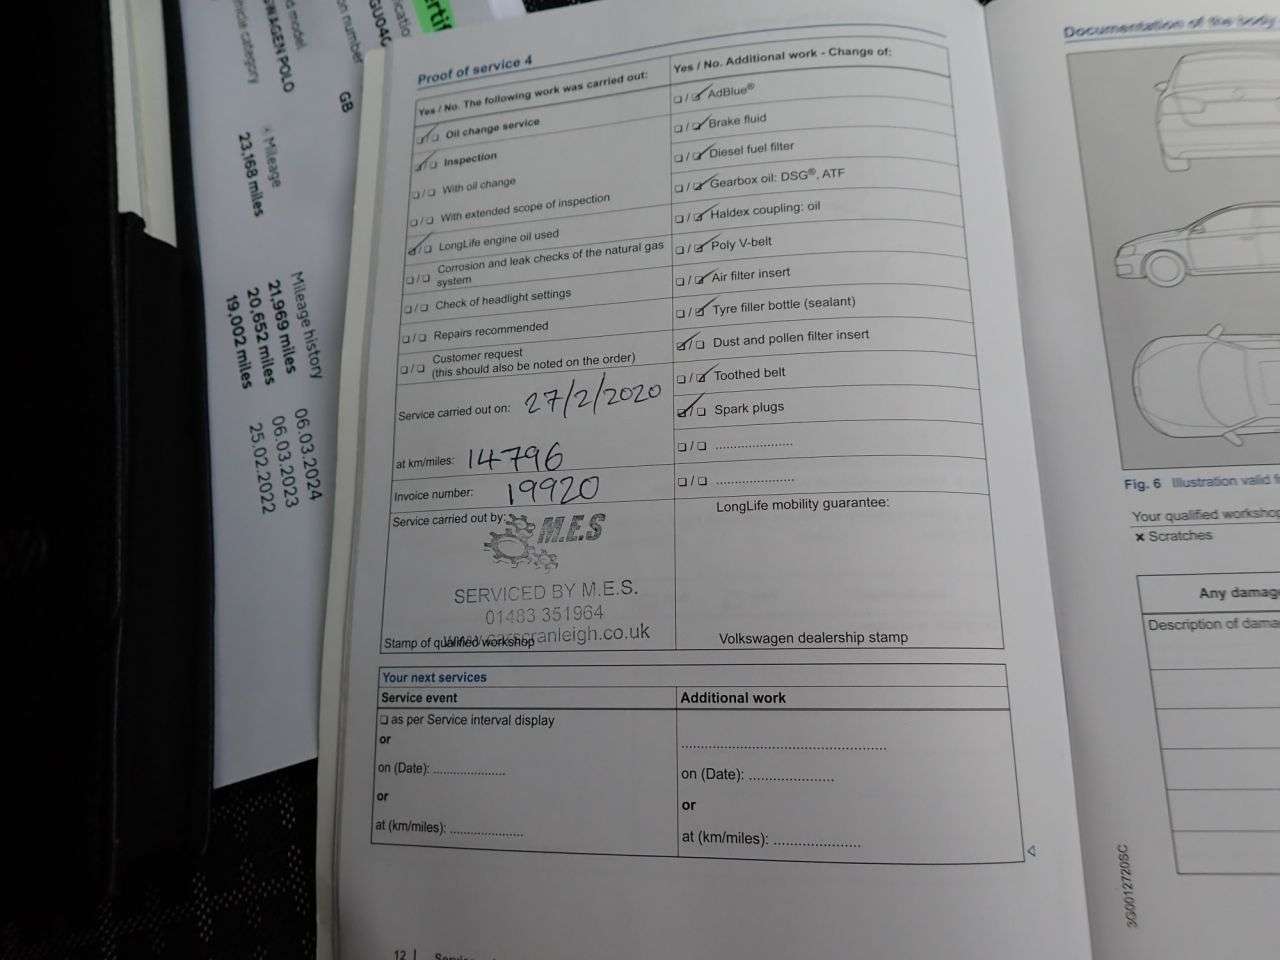 ertif
GU04C
GB
WAGEN POLO
Mileage
23,168 miles
Mileage history
21,969 miles 06.03.2024
20,652 miles 06.03.2023
19,002 miles 25.02.2022
Proof of service 4
Yes / No. The following work was carried out:
❑/❑ Oil change service
❑/❑ Inspection
❑/❑ With oil change
❑/❑ With extended scope of inspection
❑/❑ LongLife engine oil used
❑/❑ Corrosion and leak checks of the natural gas
system
❑/❑ Check of headlight settings
❑/❑ Repairs recommended
❑/❑ Customer request
(this should also be noted on the order)
Service carried out on: 27/2/2020
at km/miles: 14796
Invoice number: 19920
Service carried out by:
M.E.S
SERVICED BY M.E.S.
01483 351964
Stamp of qualified workshop
ranleigh.co.uk
Yes / No. Additional work - Change of:
❑/❑ AdBlue®
❑/❑ Brake fluid
❑/❑ Diesel fuel filter
❑/❑ Gearbox oil: DSG®, ATF
❑/❑ Haldex coupling: oil
❑/❑ Poly V-belt
❑/❑ Air filter insert
❑/❑ Tyre filler bottle (sealant)
❑/❑ Dust and pollen filter insert
❑/❑ Toothed belt
❑/❑ Spark plugs
❑/❑ .....................
❑/❑ .....................
LongLife mobility guarantee:
Volkswagen dealership stamp
Your next services
Service event
❑ as per Service interval display
or
on (Date): ...................
or
at (km/miles): ...................
Additional work
.....................................................
on (Date): ......................
or
at (km/miles): ......................
12
Documentation of the body
Fig. 6 Illustration valid f
Your qualified workshop
× Scratches
Any damag
Description of dama
3G0012720SC